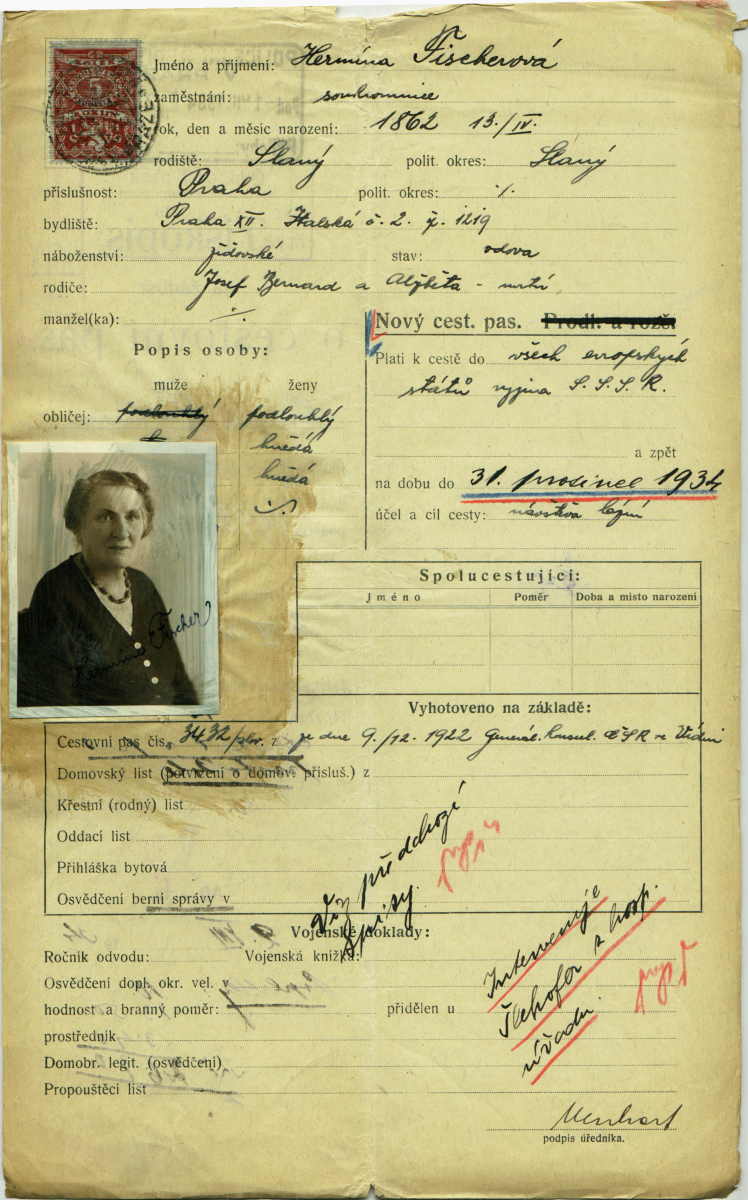 Jméno a přijmení: Hermína Fischerová
zaměstnání: soukromnice
rok, den a měsíc narození: 1862 13./IV.
rodiště: Slaný polit. okres: Slaný
příslušnost: Praha polit. okres: ./.
bydliště: Praha XII. Italská č. 2. 1219
náboženství: židovské stav: vdova
rodiče: Josef Bernard a Alžběta - mrtvi
manžel(ka): ./.
Nový cest. pas. Prodl. a rozš.
Popis osoby:
Plati k cestě do všech evropských
muže ženy
států vyjma S. S. S. R.
obličej: podlouhlý podlouhlý
hnědá
a zpět
hnědá
na dobu do 31. prosince 1934
účel a cíl cesty: návštěva lázní
Spolucestující:
Jméno Poměr Doba a místo narození
Hermine Fischer
Vyhotoveno na základě:
Cestovní pas čís. 3432/ z ze dne 9./12. 1922 Generál. Konsul. ČSR ve Vídni
Domovský list (potvrzení o domov. přísluš.) z
Křestní (rodný) list
Oddací list
Přihláška bytová
Osvědčení berní správy v
Viz předchozí
spisy.
Vojenské doklady:
Ročník odvodu: Vojenská knížka:
Osvědčení dopl. okr. vel. v
hodnost a branný poměr: přidělen u
prostředník
Domobr. legit. (osvědčení)
Propouštěcí list
Intervenuje
z hosp.
úřadu.
podpis úředníka.